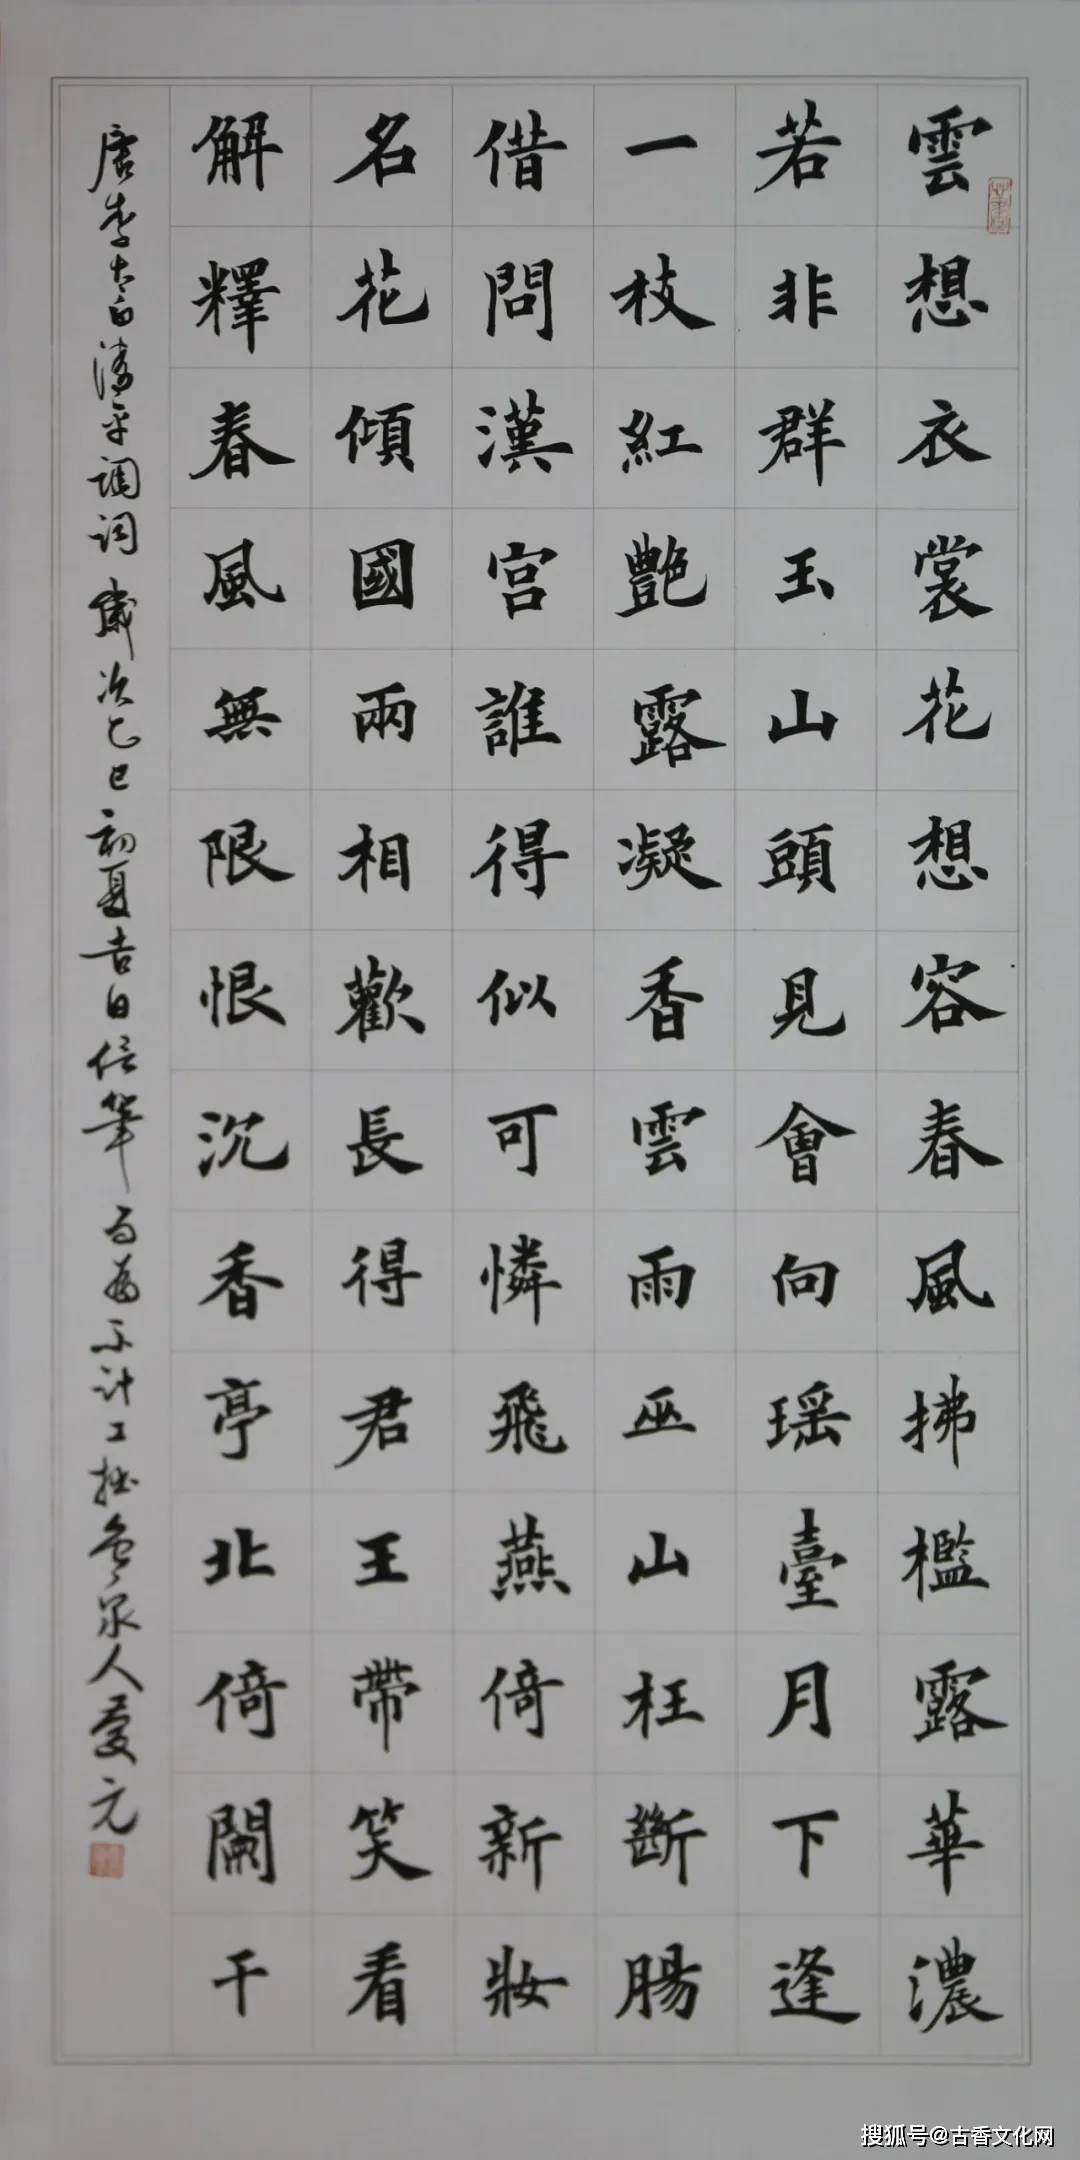 雲想衣裳花想容春風拂檻露華濃
若非群玉山頭見會向瑶臺月下逢
一枝紅艷露凝香雲雨巫山枉斷腸
借問漢宮誰得似可憐飛燕倚新妝
名花傾國兩相歡長得君王帶笑看
解釋春風無限恨沉香亭北倚闌干
唐李太白清平調詞 歲次乙巳初夏吉日信筆而為不計工拙 泉人慶元
搜狐号@古香文化网